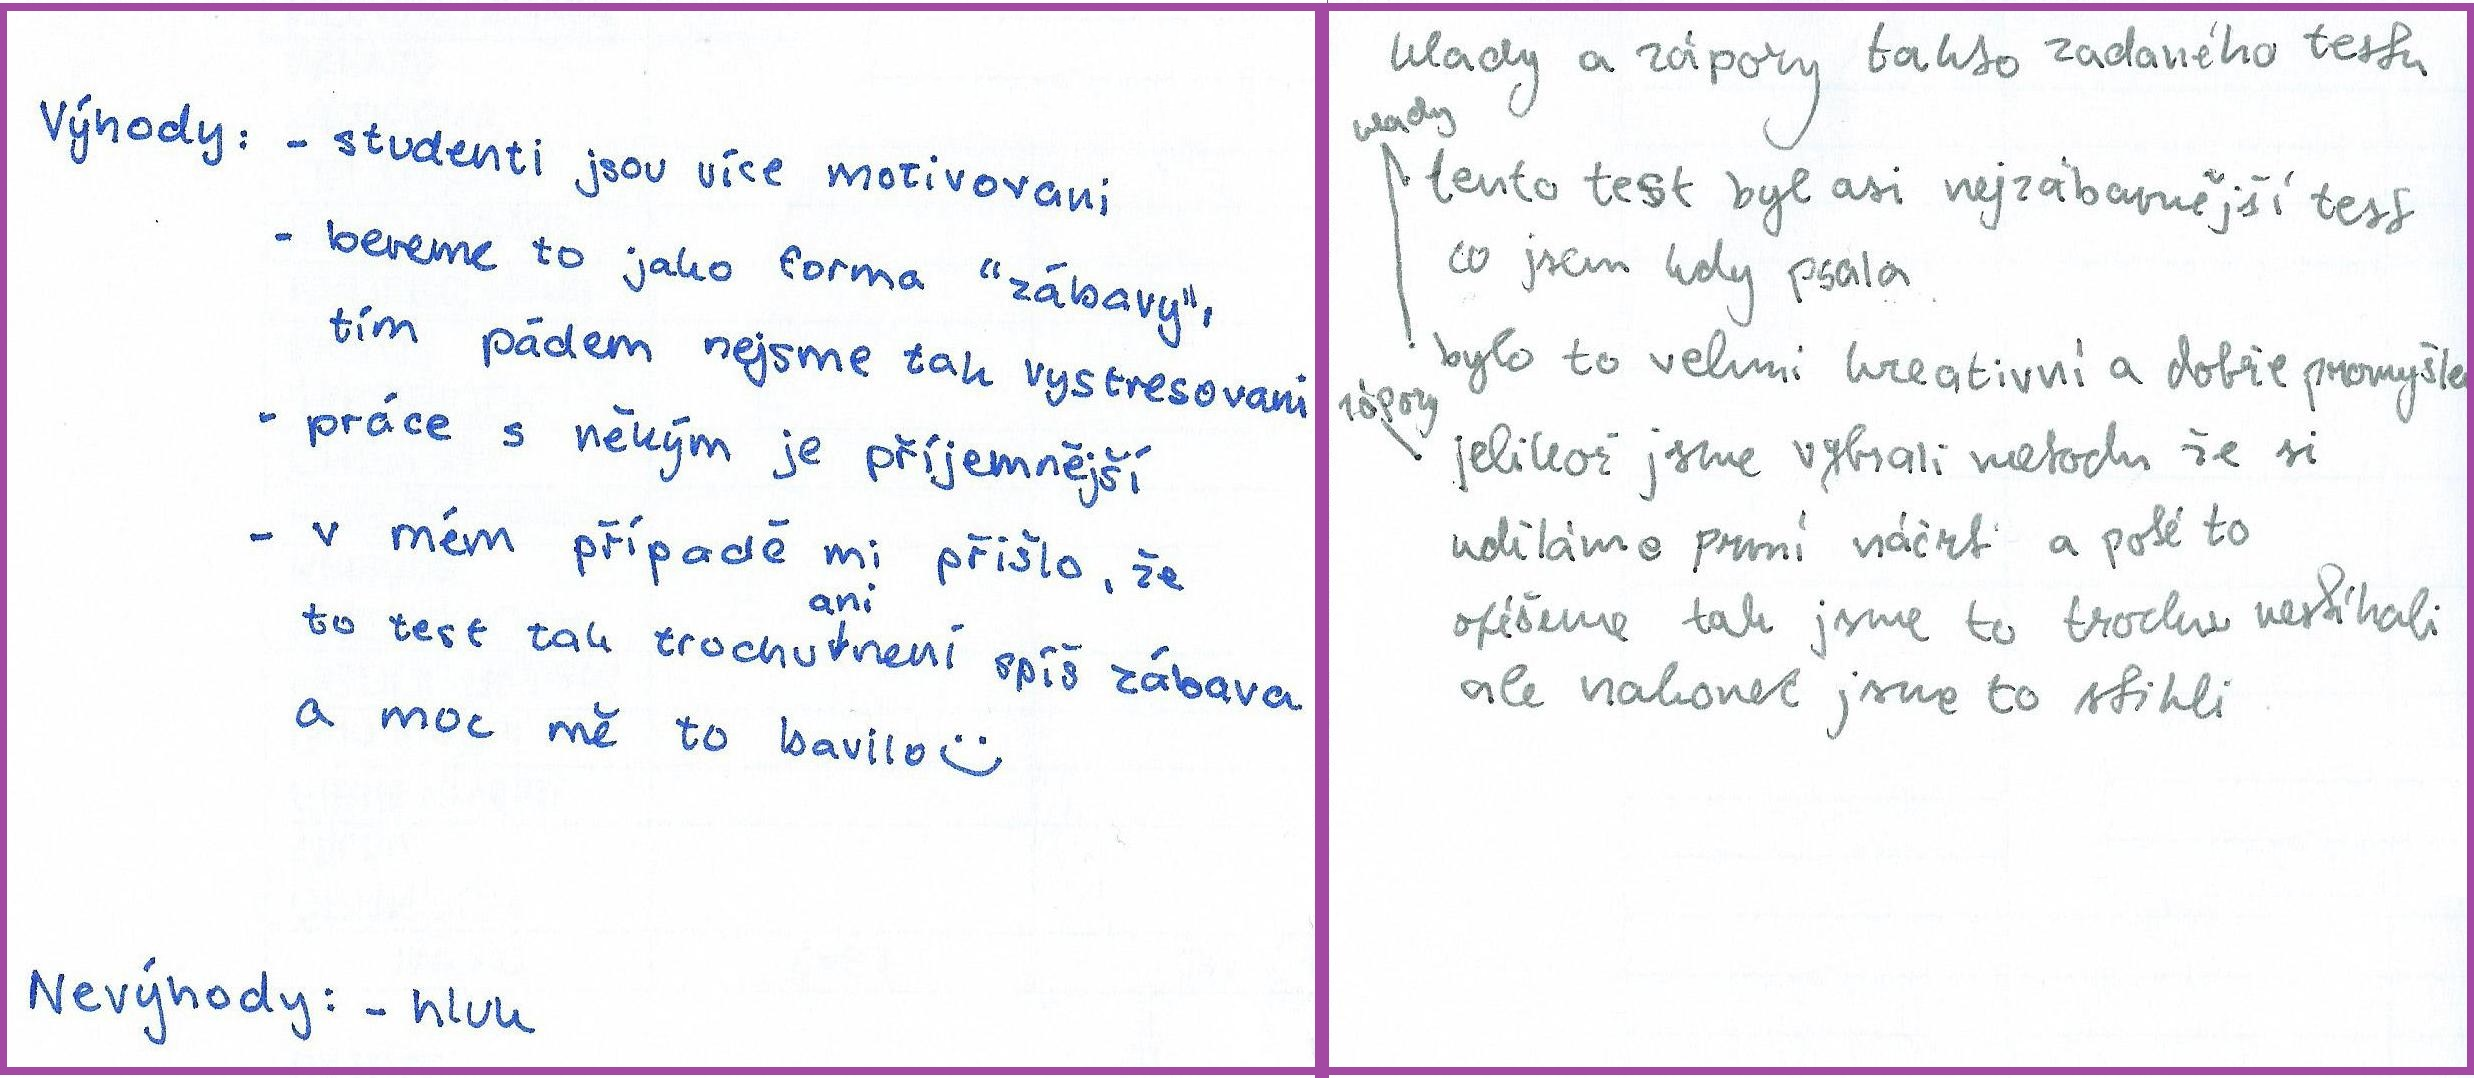 Výhody: - studenti jsou více motivovani
- bereme to jako forma “zábavy",
tím pádem nejsme tak vystresovani
- práce s někým je příjemnější
- v mém případě mi přišlo, že
ani
to test tak trochu není spíš zábava
a moc mě to bavilo
Nevýhody: - hluk
klady a zápory takto zadaného testu
klady
tento test byl asi nejzábavnější test
co jsem kdy psala
bylo to velmi kreativní a dobře promyšle
zápory
jelikož jsme vybrali metodu že si
uděláme první náčrt a poté to
opíšeme tak jsme to trochu nestíhali
ale nakonec jsme to stihli